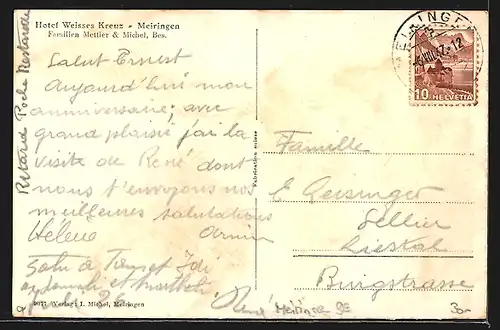 Hotel Weisses Kreuz - Meiringen
Familien Mettier & Michel, Bes.
Salut Ernest
Aujourd'hui mon
anniversaire avec
grand plaisir j'ai la
visite de René dont
nous t'envoyons nos
meilleures salutations
Helene Armin
Poste Restante
Fabrication suisse
9077 Verlag: J. Michel, Meiringen
MEIRINGEN
10 HELVETIA
Famille
E. Geisinger
Sellier
Liestal
Burgstrasse
Meiringen BE
30-